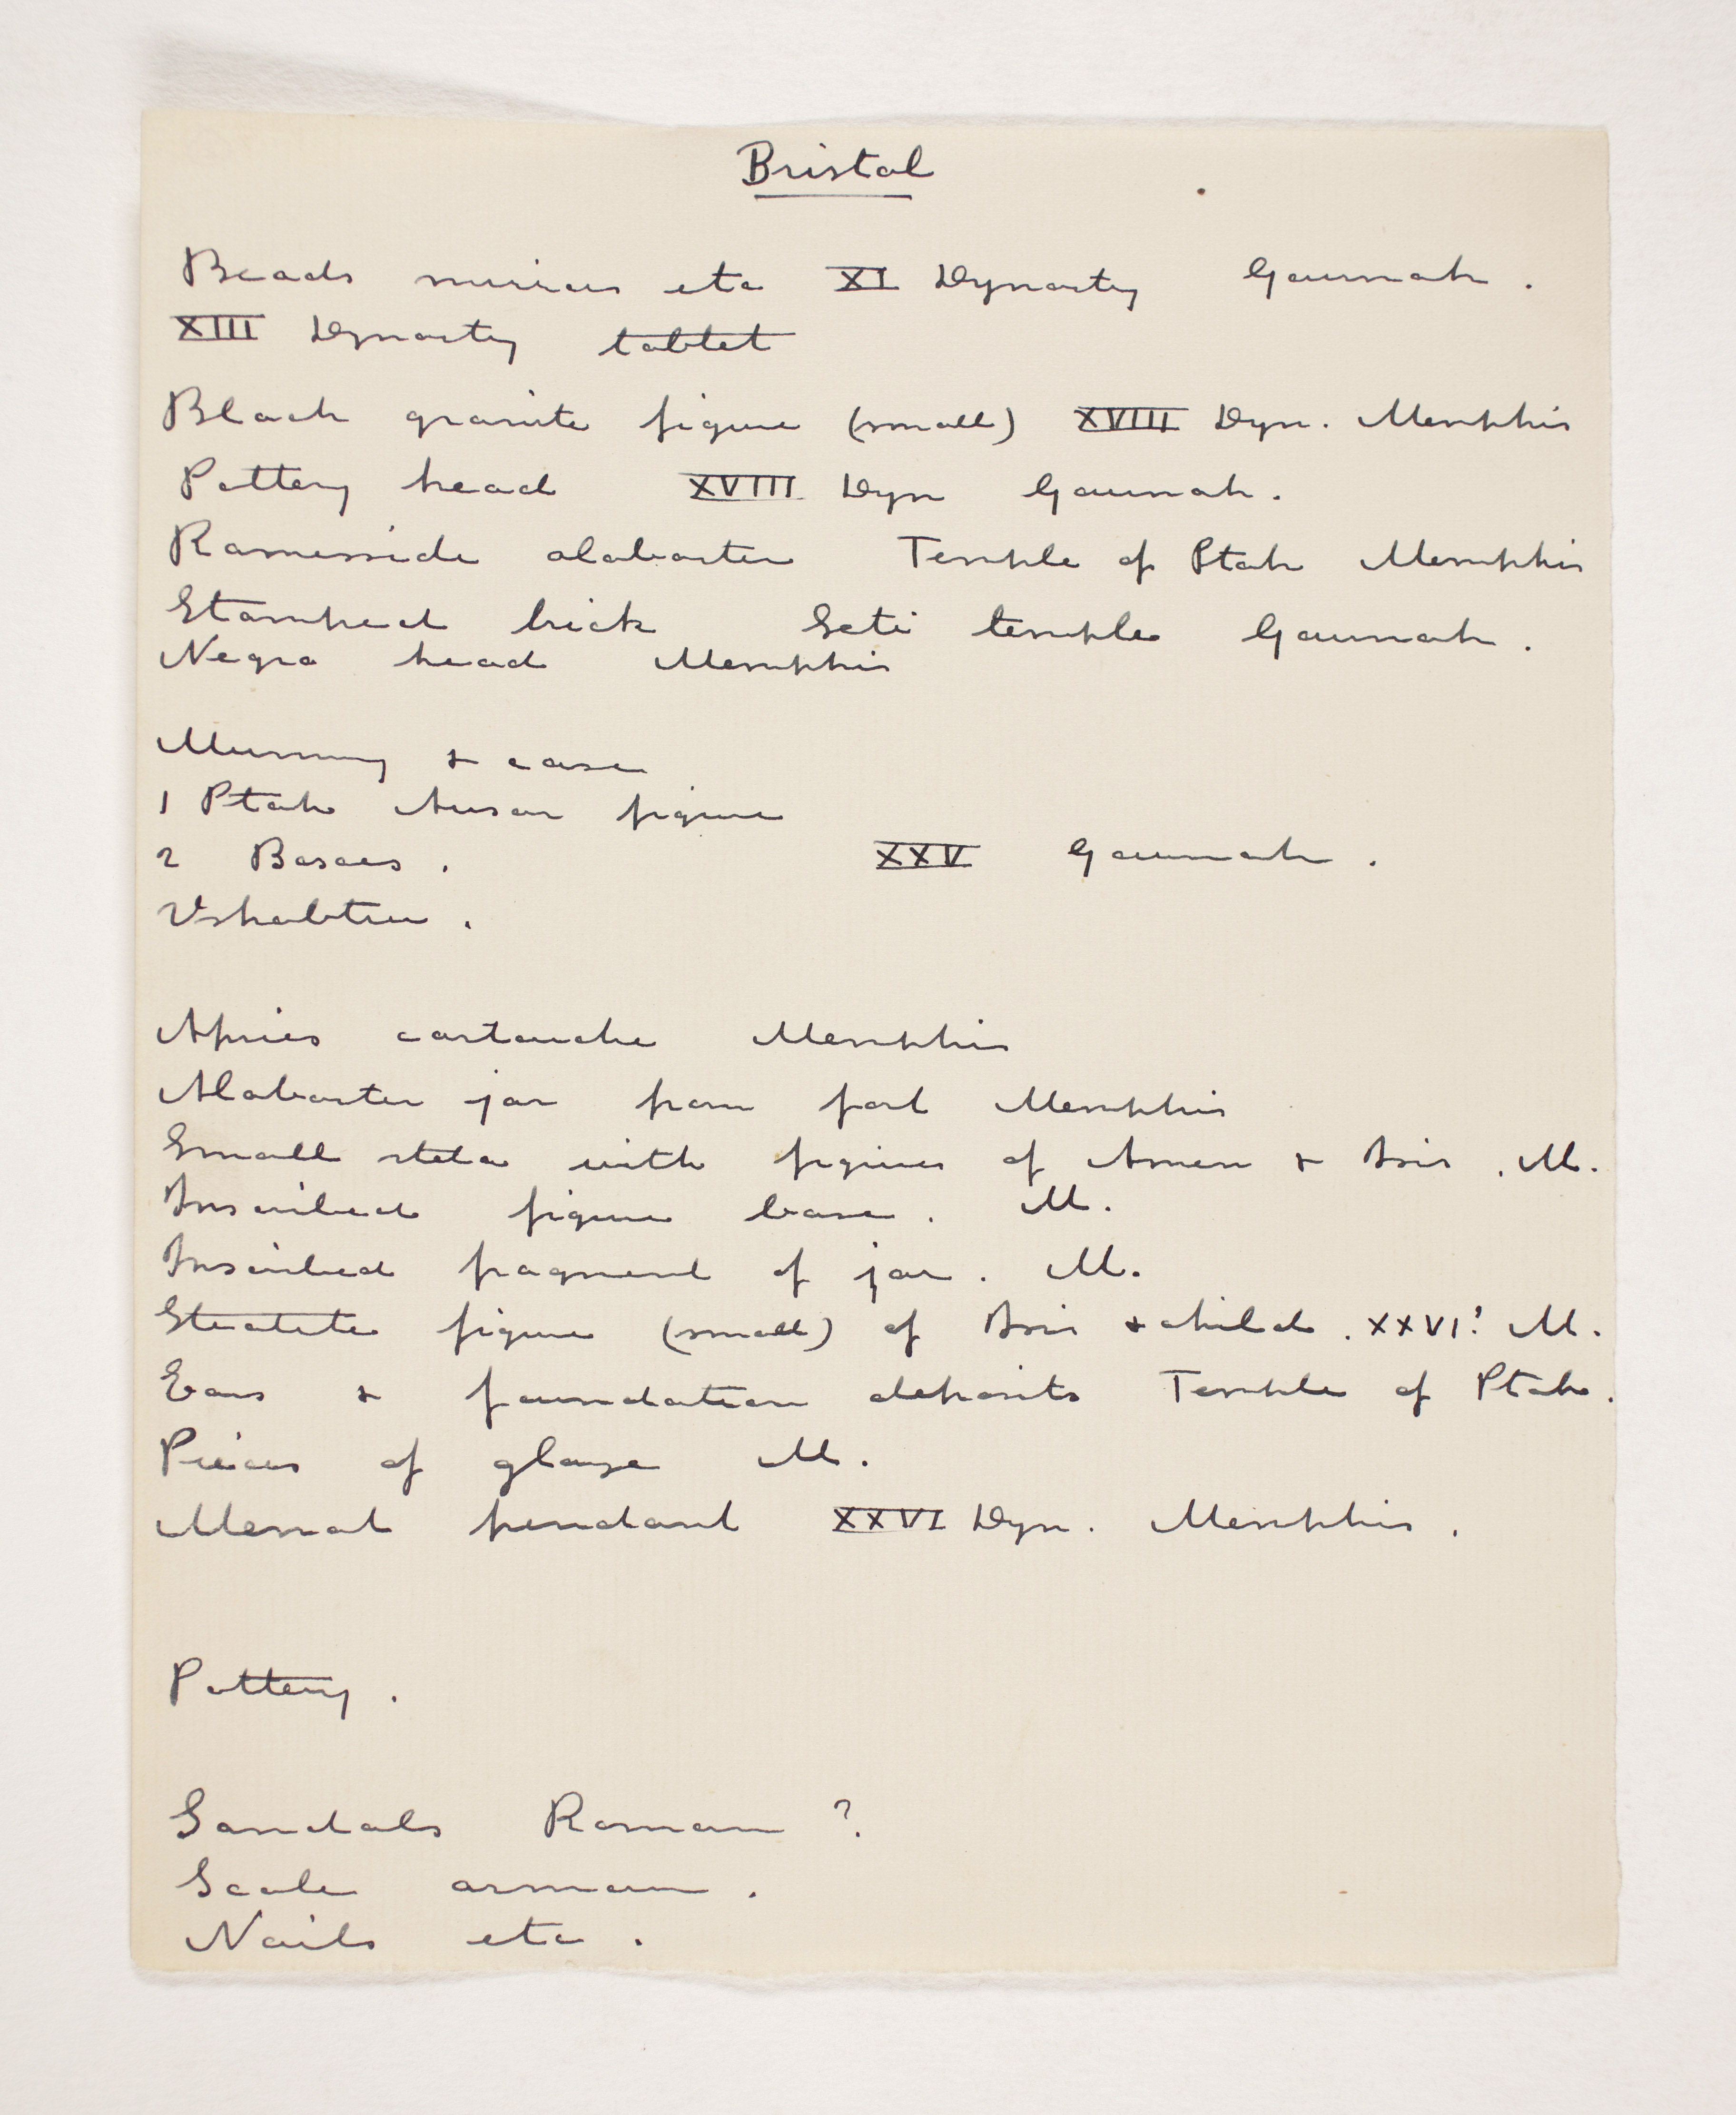 Bristol
Beads mirrors etc XI Dynasty Gournah.
XIII Dynasty tablet
Black granite figure (small) XVIII Dyn. Memphis
Pottery head XVIII Dyn Gournah.
Ramesside alabaster Temple of Ptah Memphis
Stamped brick Seti temple Gournah.
Negro head Memphis
Mummy + case
1 Ptah Ausar figure
2 Boxes. XXV Gournah.
Ushabtiu.
Apries cartouche Memphis
Alabaster jar from fort Memphis
Small stela with figures of Amen + Isis. M.
Inscribed figure base. M.
Inscribed fragment of jar. M.
Steatite figure (small) of Isis + child. XXVI? M.
Ears + foundation deposits Temple of Ptah.
Pieces of glaze M.
Menat pendant XXVI Dyn. Memphis.
Pottery.
Sandals Roman ?
Scale armour.
Nails etc.